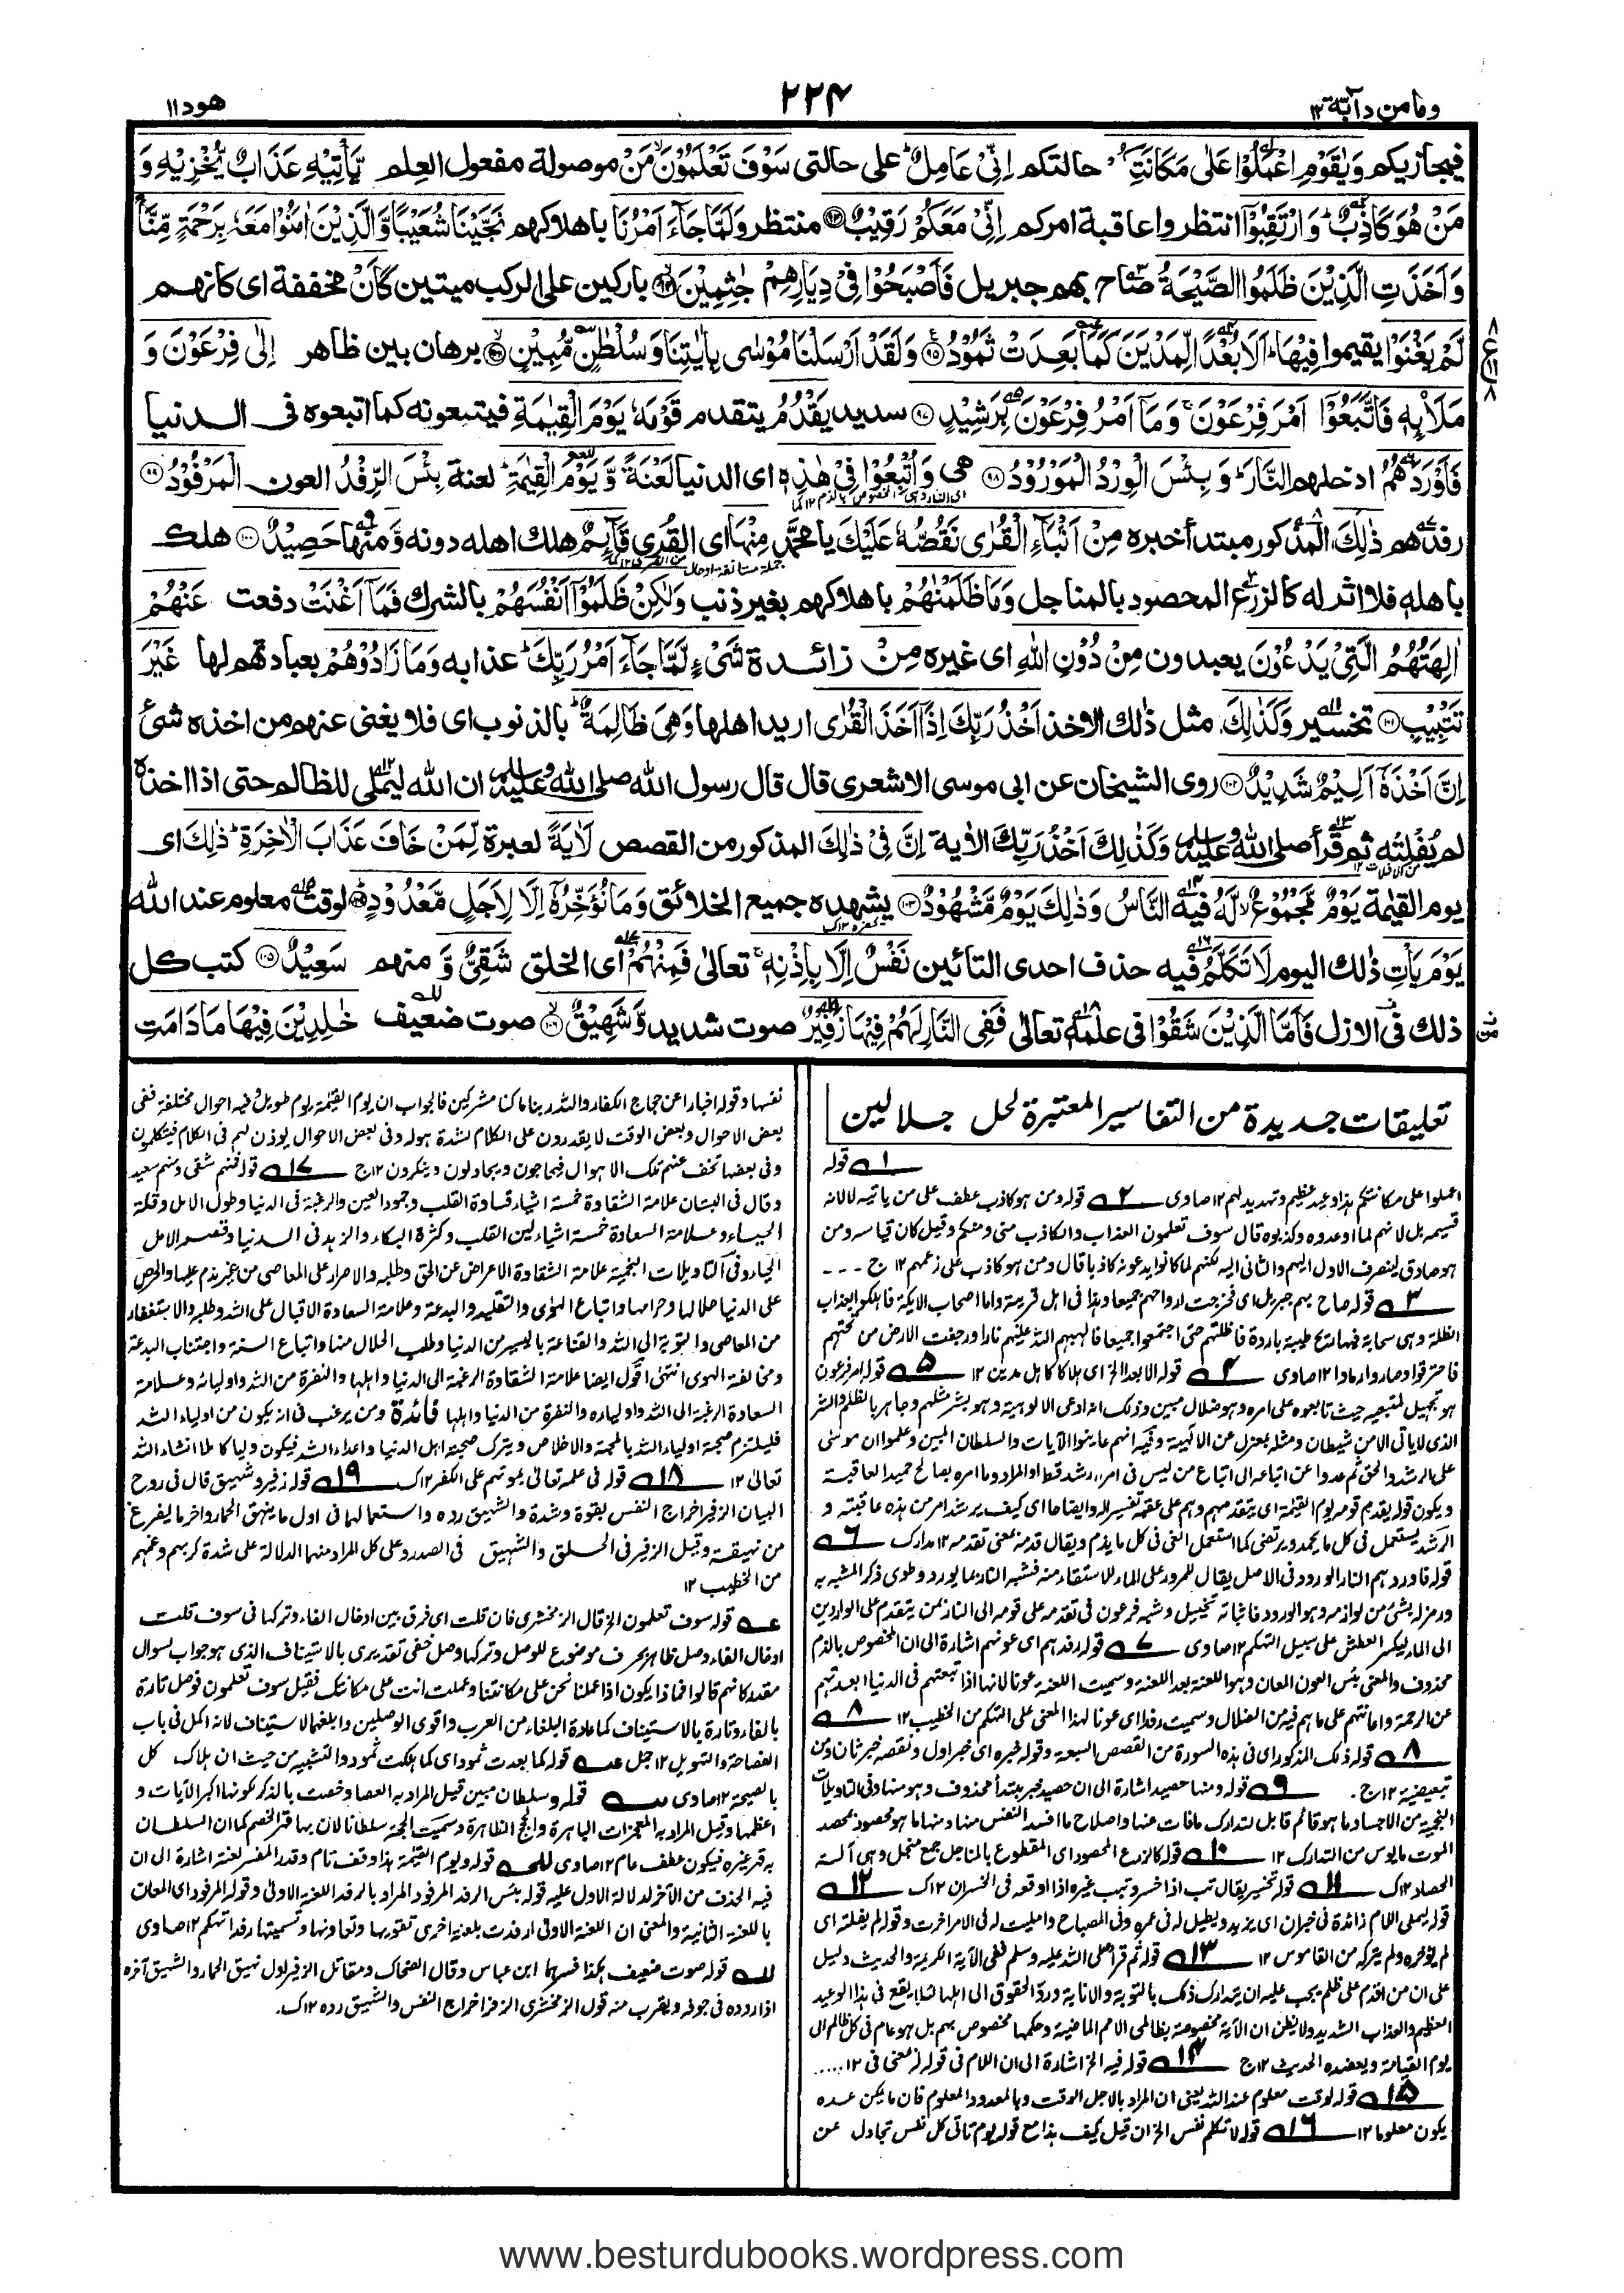 وما من دآبة ١٢
٢٢٤
هود ١١
فيجازيكم وَيٰقَوْمِ اعْمَلُوْا عَلٰى مَكَانَتِكُمْ حالتكم اِنِّىْ عَامِلٌ على حالتى سَوْفَ تَعْلَمُوْنَ مَنْ موصولة مفعول العِلم يَّاْتِيْهِ عَذَابٌ يُّخْزِيْهِ وَ
مَنْ هُوَ كَاذِبٌ وَارْتَقِبُوْٓا انتظروا عاقبة امركم اِنِّىْ مَعَكُمْ رَقِيْبٌ ٩٣ منتظر وَلَمَّا جَآءَ اَمْرُنَا باهلاكهم نَجَّيْنَا شُعَيْبًا وَّالَّذِيْنَ اٰمَنُوْا مَعَهٗ بِرَحْمَةٍ مِّنَّا
وَاَخَذَتِ الَّذِيْنَ ظَلَمُوا الصَّيْحَةُ صاح بهم جبريل فَاَصْبَحُوْا فِىْ دِيَارِهِمْ جٰثِمِيْنَ ٩٤ باركين على الركب ميتين كَاَنْ مخففة اى كانهم
لَّمْ يَغْنَوْا يقيموا فِيْهَا اَلَا بُعْدًا لِّمَدْيَنَ كَمَا بَعِدَتْ ثَمُوْدُ ٩٥ وَلَقَدْ اَرْسَلْنَا مُوْسٰى بِاٰيٰتِنَا وَسُلْطٰنٍ مُّبِيْنٍ ٩٦ برهان بين ظاهر اِلٰى فِرْعَوْنَ وَ
مَلَا۟ئِهٖ فَاتَّبَعُوْٓا اَمْرَ فِرْعَوْنَ وَمَآ اَمْرُ فِرْعَوْنَ بِرَشِيْدٍ ٩٧ سديد يَقْدُمُ يتقدم قَوْمَهٗ يَوْمَ الْقِيٰمَةِ فيتبعونه كما اتبعوه فى الدنيا
فَاَوْرَدَهُمُ ادخلهم النَّارَ وَبِئْسَ الْوِرْدُ الْمَوْرُوْدُ ٩٨ هى وَاُتْبِعُوْا فِىْ هٰذِهٖ اى الدنيا لَعْنَةً وَّيَوْمَ الْقِيٰمَةِ لعنة بِئْسَ الرِّفْدُ العون الْمَرْفُوْدُ ٩٩
رفدهم ذٰلِكَ المذكور مبتدأ خبره مِنْ اَنْۢبَآءِ الْقُرٰى نَقُصُّهٗ عَلَيْكَ يا محمد مِنْهَا اى القرى قَآئِمٌ هلك اهله دونه وَّمنها حَصِيْدٌ ١٠٠ هلك
باهله فلا اثر له كالزرع المحصود بالمناجل وَمَا ظَلَمْنٰهُمْ باهلاكهم بغير ذنب وَلٰكِنْ ظَلَمُوْٓا اَنْفُسَهُمْ بالشرك فَمَآ اَغْنَتْ دفعت عَنْهُمْ
اٰلِهَتُهُمُ الَّتِىْ يَدْعُوْنَ يعبدون مِنْ دُوْنِ اللّٰهِ اى غيره مِنْ زائدة شَىْءٍ لَّمَّا جَآءَ اَمْرُ رَبِّكَ عذابه وَمَا زَادُوْهُمْ بعبادتهم لها غَيْرَ
تَتْبِيْبٍ ١٠١ تخسير وَكَذٰلِكَ مثل ذٰلك الاخذ اَخْذُ رَبِّكَ اِذَآ اَخَذَ الْقُرٰى اريد اهلها وَهِىَ ظَالِمَةٌ بالذنوب اى فلا يغنى عنهم من اخذه شئ
اِنَّ اَخْذَهٗٓ اَلِيْمٌ شَدِيْدٌ ١٠٢ روى الشيخان عن ابى موسى الاشعرى قال قال رسول الله صلى الله عليه وسلم ان الله ليملى للظالم حتى اذا اخذه
لم يفلته ثم قرأ صلى الله عليه وسلم وَكَذٰلِكَ اَخْذُ رَبِّكَ الاٰية اِنَّ فِىْ ذٰلِكَ المذكور من القصص لَاٰيَةً لعبرة لِّمَنْ خَافَ عَذَابَ الْاٰخِرَةِ ذٰلِكَ اى
يوم القيٰمة يَوْمٌ مَّجْمُوْعٌ لَّهُ فيه النَّاسُ وَذٰلِكَ يَوْمٌ مَّشْهُوْدٌ ١٠٣ يشهده جميع الخلائق وَمَا نُؤَخِّرُهٗٓ اِلَّا لِاَجَلٍ مَّعْدُوْدٍ ١٠٤ لوقت معلوم عند الله
يَوْمَ يَاْتِ ذٰلك اليوم لَا تَكَلَّمُ فيه حذف احدى التائين نَفْسٌ اِلَّا بِاِذْنِهٖ تعالىٰ فَمِنْهُمْ اى الخلق شَقِىٌّ وَّ منهم سَعِيْدٌ ١٠٥ كتب كل
ذلك فى الازل فَاَمَّا الَّذِيْنَ شَقُوْا فى علمه تعالىٰ فَفِى النَّارِ لَهُمْ فِيْهَا زَفِيْرٌ صوت شديد وَّشَهِيْقٌ ١٠٦ صوت ضعيف خٰلِدِيْنَ فِيْهَا مَا دَامَتِ
تعليقات جديدة من التفاسير المعتبرة لحل جلالين
١ قوله
اعملوا على مكانتكم هذا وعيد عظيم وتهديد لهم ١٢ صاوى ٢ قوله ومن هو كاذب عطف على من ياتيه لا لانه
قسيمه بل لانهم لما اوعدوه وكذبوه قال سوف تعلمون العذاب والكاذب منى ومنكم وقيل كان قياسه ومن
هو صادق لينصرف الاول اليهم والثانى اليه لكنهم لما كانوا يدعونه كاذبا قال ومن هو كاذب على زعمهم ١٢ ج
٣ قوله صاح بهم جبريل اى فخرجت ارواحهم جميعا وهذا فى اهل قريته واما اصحاب الايكة فاهلكوا بعذاب
الظلة وهى سحابة فيها ريح طيبة باردة فاظلتهم حتى اجتمعوا جميعا فالهبها الله عليهم نارا ورجفت الارض من تحتهم
فاحترقوا وصاروا رمادا ١٢ صاوى ٤ قوله الا بعدا الخ اى هلاكا كاهل مدين ١٢ ٥ قوله امر فرعون
هو تجهيل لمتبعيه حيث تابعوه على امره وهو ضلال مبين وذلك انه ادعى الالوهية وهو بشر مثلهم وجاهر بالظلم والشر
الذى لا ياتى الا من شيطان ومثله بمعزل عن الالهية وفيه انهم عاينوا الآيات والسلطان المبين وعلموا ان موسى
على الرشد والحق ثم عدلوا عن اتباعه الى اتباع من ليس فى امره رشد قط او المراد وما امره بصالح حميد العاقبة
ويكون قوله يقدم قومه يوم القيٰمة اى يتقدمهم وهم على عقبه تفسيرا له وايضاحا اى كيف يرشد امر من هذه عاقبته و
الرشد يستعمل فى كل ما يحمد ويرتضى كما استعمل الغى فى كل ما يذم ويقال قدمه بمعنى تقدمه ١٢ مدارك ٦
قوله فاوردهم النار الورود فى الاصل يقال للمرور على الماء للاستقاء منه فشبه النار بما يورد وطوى ذكر المشبه به
ورمز له بشئ من لوازمه وهو الورود فاثباته تخييل وشبه فرعون فى تقدمه على قومه الى النار بمن يتقدم على الواردين
الى الماء ليكسر العطش على سبيل التهكم ١٢ صاوى ٧ قوله رفدهم اى عونهم اشارة الى ان المخصوص بالذم
محذوف والمعنى بئس العون المعان وهو اللعنة بعد اللعنة وسميت اللعنة عونا لانها اذا تبعتهم فى الدنيا ابعدتهم
عن الرحمة واعانتهم على ما هم فيه من الضلال وسميت رفدا اى عونا لهذا المعنى على التهكم من الخطيب ١٢ ٨
٨ قوله ذلك المذكور اى فى هذه السورة من القصص السبعة وقوله خبره اى خبر اول ونقصه خبر ثان ومن
تبعيضية ١٢ ج. ٩ قوله ومنها حصيد اشارة الى ان حصيد خبر مبتدأ محذوف وهو منها وفى التاويلات
النجمية من الاجساد ما هو قائم قابل لتدارك ما فات عنها واصلاح ما افسد النفس منها ومنها ما هو محصود بحصد
الموت مايوس من التدارك ١٢ ١٠ قوله كالزرع المحصود اى المقطوع بالمناجل جمع منجل وهى آلة
الحصاد ١٢ ك ١١ قوله تخسير يقال تب اذا خسر وتبب غيره اذا اوقعه فى الخسران ١٢ ك ١٢
قوله ليملى اللام زائدة فى خبر ان اى يزيد ويطيل له فى عمره وفى المصباح وامليت له فى الامر اخرت وقوله لم يفلته اى
لم يؤخره ولم يتركه من القاموس ١٢ ١٣ قوله ثم قرأ صلى الله عليه وسلم ففى الآية الكريمة والحديث دليل
على ان من اقدم على ظلم يجب عليه ان يتدارك ذلك بالتوبة والانابة ورد الحقوق الى اهلها لئلا يقع فى هذا الوعيد
العظيم والعذاب الشديد ولا يظن ان الآية مخصوصة بظالمى الامم الماضية وحكمها مخصوص بهم بل هو عام فى كل ظالم الى
يوم القيامة ويعضده الحديث ١٢ ج ١٤ قوله فيه الخ اشارة الى ان اللام فى قوله له بمعنى فى ١٢
١٥ قوله لوقت معلوم عند الله يعنى ان المراد بالاجل الوقت وبالمعدود المعلوم فان ما يمكن عده
يكون معلوما ١٢ ١٦ قوله لا تكلم نفس الخ ان قيل كيف هذا مع قوله يوم تاتى كل نفس تجادل عن
نفسها وقوله اخبارا عن حجاج الكفار والله ربنا ما كنا مشركين فالجواب ان يوم القيٰمة يوم طويل وفيه احوال مختلفة ففى
بعض الاحوال وبعض الوقت لا يقدرون على الكلام لشدة هوله وفى بعض الاحوال يوذن لهم فى الكلام فيتكلمون
وفى بعضها تخف عنهم تلك الاهوال فيحاجون ويجادلون وينكرون ١٢ ج ١٧ قوله فمنهم شقى ومنهم سعيد
وقال فى البستان علامة الشقاوة خمسة اشياء قساوة القلب وجمود العين والرغبة فى الدنيا وطول الامل وقلة
الحياء وعلامة السعادة خمسة اشياء لين القلب وكثرة البكاء والزهد فى الدنيا وقصر الامل
الحياء وفى التاويلات النجمية علامة الشقاوة الاعراض عن الحق وطلبه والاصرار على المعاصى من غير ندم عليها والحرص
على الدنيا حلالها وحرامها واتباع الهوى والتقليد والبدعة وعلامة السعادة الاقبال على الله وطلبه والاستغفار
من المعاصى والتوبة الى الله والقناعة باليسير من الدنيا وطلب الحلال منها واتباع السنة واجتناب البدعة
ومخالفة الهوى انتهى اقول ايضا علامة الشقاوة الرغبة الى الدنيا واهلها والنفرة من الله واوليائه وعلامة
السعادة الرغبة الى الله واولياءه والنفرة من الدنيا واهلها فائدة ومن يرغب فى انه يكون من اولياء الله
فليلتزم صحبة اولياء الله بالمحبة والاخلاص ويترك صحبة اهل الدنيا واعداء الله فيكون وليا كاملا انشاء الله
تعالى ١٢ ١٨ قوله فى علمه تعالى بموتهم على الكفر ١٢ ك ١٩ قوله زفير وشهيق قال فى روح
البيان الزفير اخراج النفس بقوة وشدة والشهيق رده واستعمالهما فى اول ما ينهق الحمار وآخر ما يفرغ
من نهيقه وقيل الزفير فى الحلق والشهيق فى الصدر وعلى كل المراد منهما الدلالة على شدة كربهم وغمهم
من الخطيب ١٢
عه قوله سوف تعلمون الخ قال الزمخشرى فان قلت اى فرق بين ادخال الفاء وتركها فى سوف قلت
ادخال الفاء وصل ظاهر بحرف موضوع للوصل وتركها وصل خفى تقديرى بالاستيناف الذى هو جواب لسوال
مقدر كانهم قالوا فما ذا يكون اذا عملنا نحن على مكانتنا وعملت انت على مكانتك فقيل سوف تعلمون فوصل تارة
بالفاء وتارة بالاستيناف كما عادة البلغاء من العرب واقوى الوصلين وابلغهما الاستيناف لانه اكمل فى باب
الفصاحة والتهويل ١٢ جمل عه قوله كما بعدت ثمود اى كما هلكت ثمود والتشبيه من حيث ان هلاك كل
بالصيحة ١٢ صاوى سه قوله وسلطان مبين قيل المراد به العصا وخصت بالذكر لكونها اكبر الآيات و
اعظمها وقيل المراد به المعجزات الباهرة والحجج الظاهرة وسميت الحجة سلطانا لان بها قهر الخصم كما ان السلطان
به قهر غيره فيكون عطف عام ١٢ صاوى للعه قوله ويوم القيٰمة هذا وقف تام وقدر المفسر لعنة اشارة الى ان
فيه الحذف من الآخر لدلالة الاول عليه قوله بئس الرفد المرفود المراد بالرفد اللعنة الاولى وقوله المرفود اى المعان
باللعنة الثانية والمعنى ان اللعنة الاولى ارفدت بلعنة اخرى تقويها وتعاونها وتسميتها رفدا تهكم ١٢ صاوى
لله قوله صوت ضعيف هكذا فسرهما ابن عباس وقال الضحاك ومقاتل الزفير اول نهيق الحمار والشهيق آخره
اذا ردده فى جوفه ويقرب منه قول الزمخشرى الزفير اخراج النفس والشهيق رده ١٢ ك.
www.besturdubooks.wordpress.com